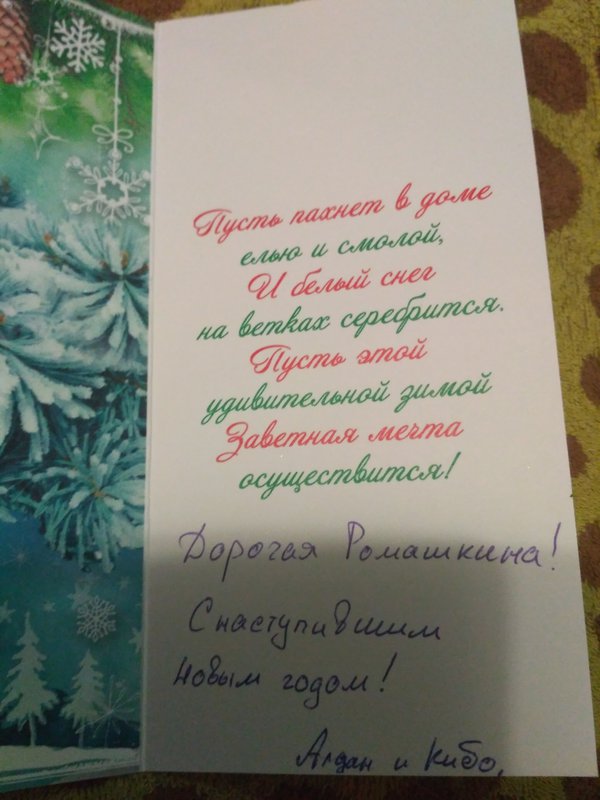 Пусть пахнет в доме
елью и смолой,
И белый снег
на ветках серебрится.
Пусть этой
удивительной зимой
Заветная мечта
осуществится!
Дорогая Ромашкина!
С наступившим
новым годом!
Алдан и Кибо,